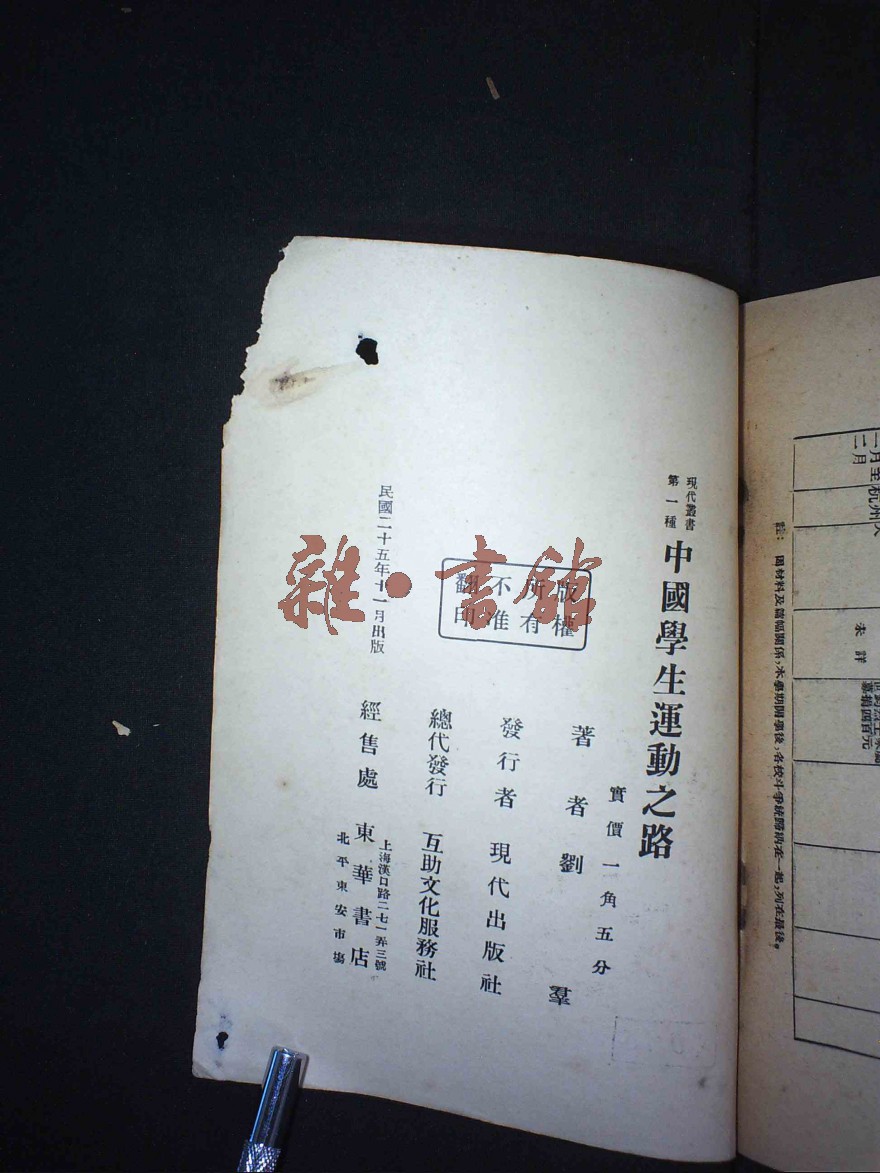 現代叢書
第一種
中國學生運動之路
實價一角五分
著者 劉羣
發行者 現代出版社
總代發行 互助文化服務社
上海漢口路二七一弄三號
經售處 東華書店
北平東安市場
版權
所有
不准
翻印
民國二十五年十一月出版
雜·書館
註：因材料及篇幅關係，本學期開學後，各校斗爭統歸納在一起，列在最後。
二月至
二月
杭州
未詳
募捐四百元